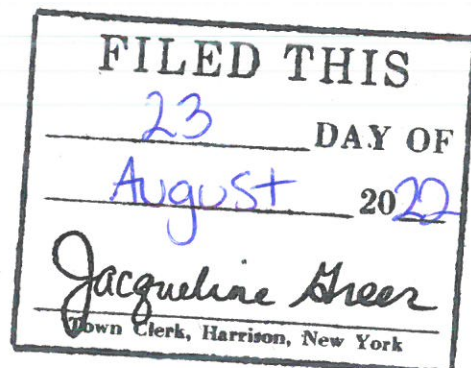 FILED THIS
23 DAY OF
August 2022
Jacqueline Greer
Town Clerk, Harrison, New York